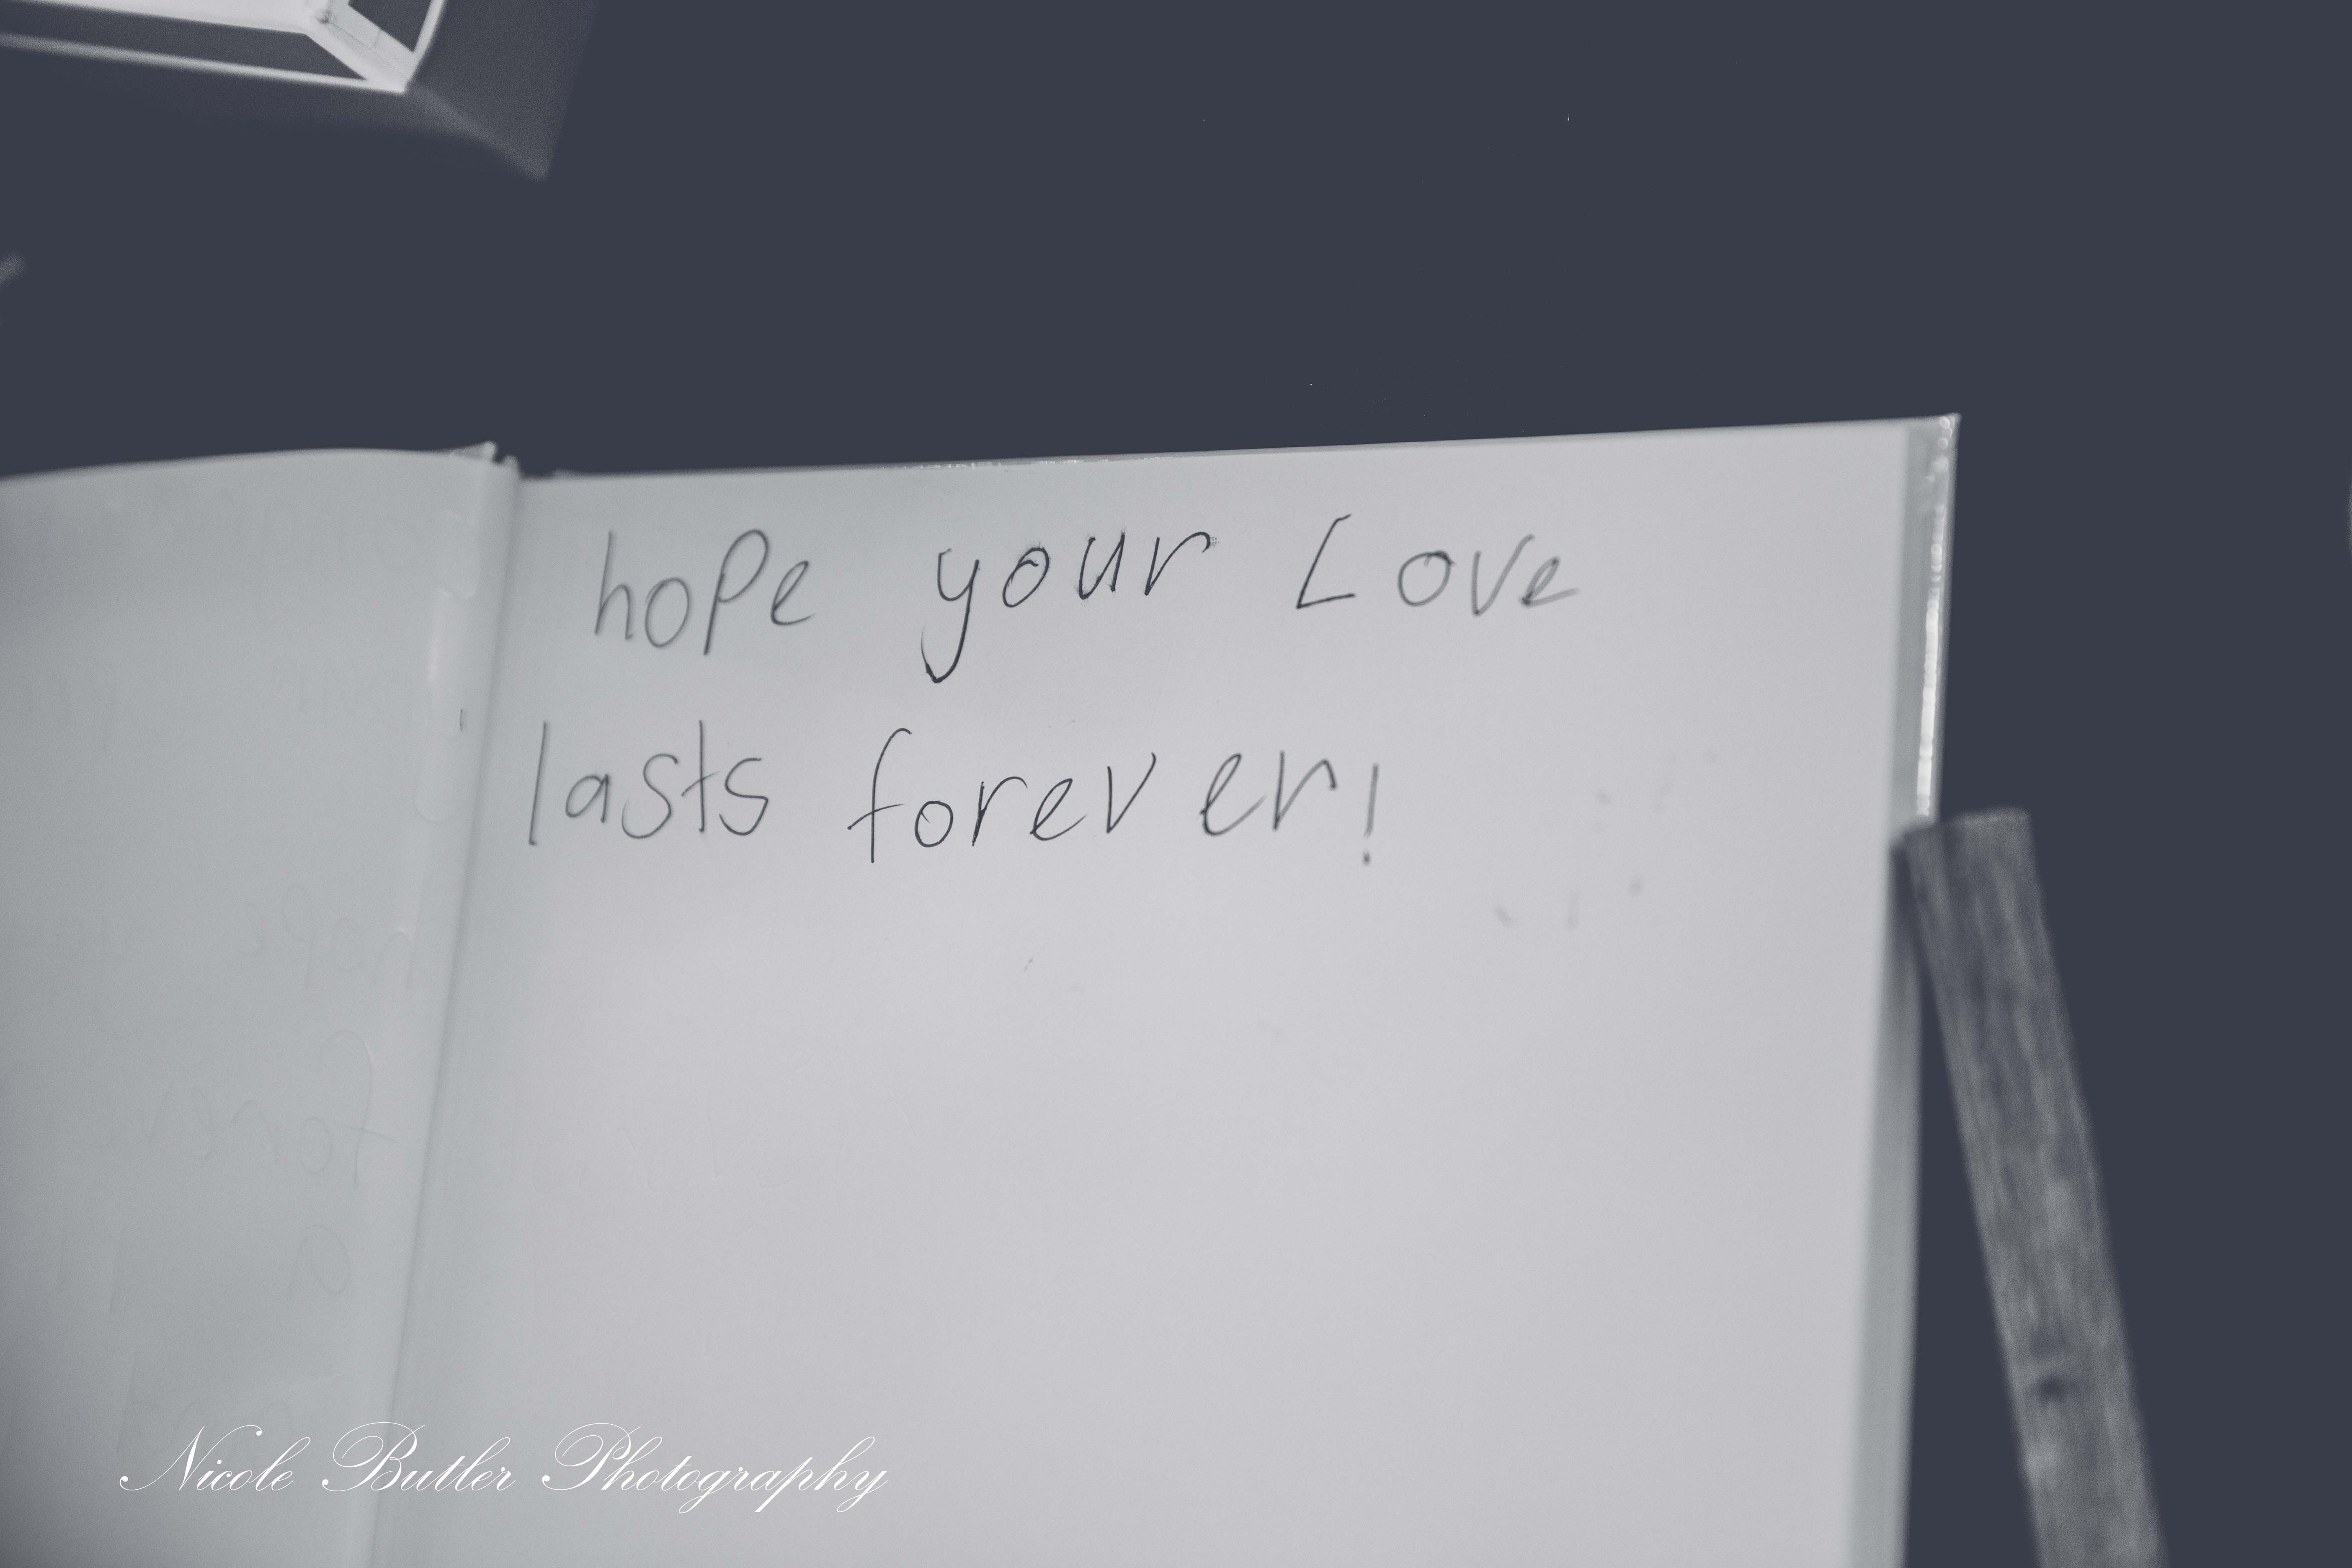 hope your Love
lasts forever!
Nicole Butler Photography